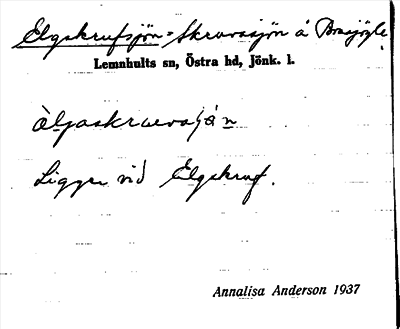 Elgskrufsjön = Skruvsjön å
Lemnhults sn, Östra hd, Jönk. l.
Ligger vid Elgskruf.
Annalisa Anderson 1937